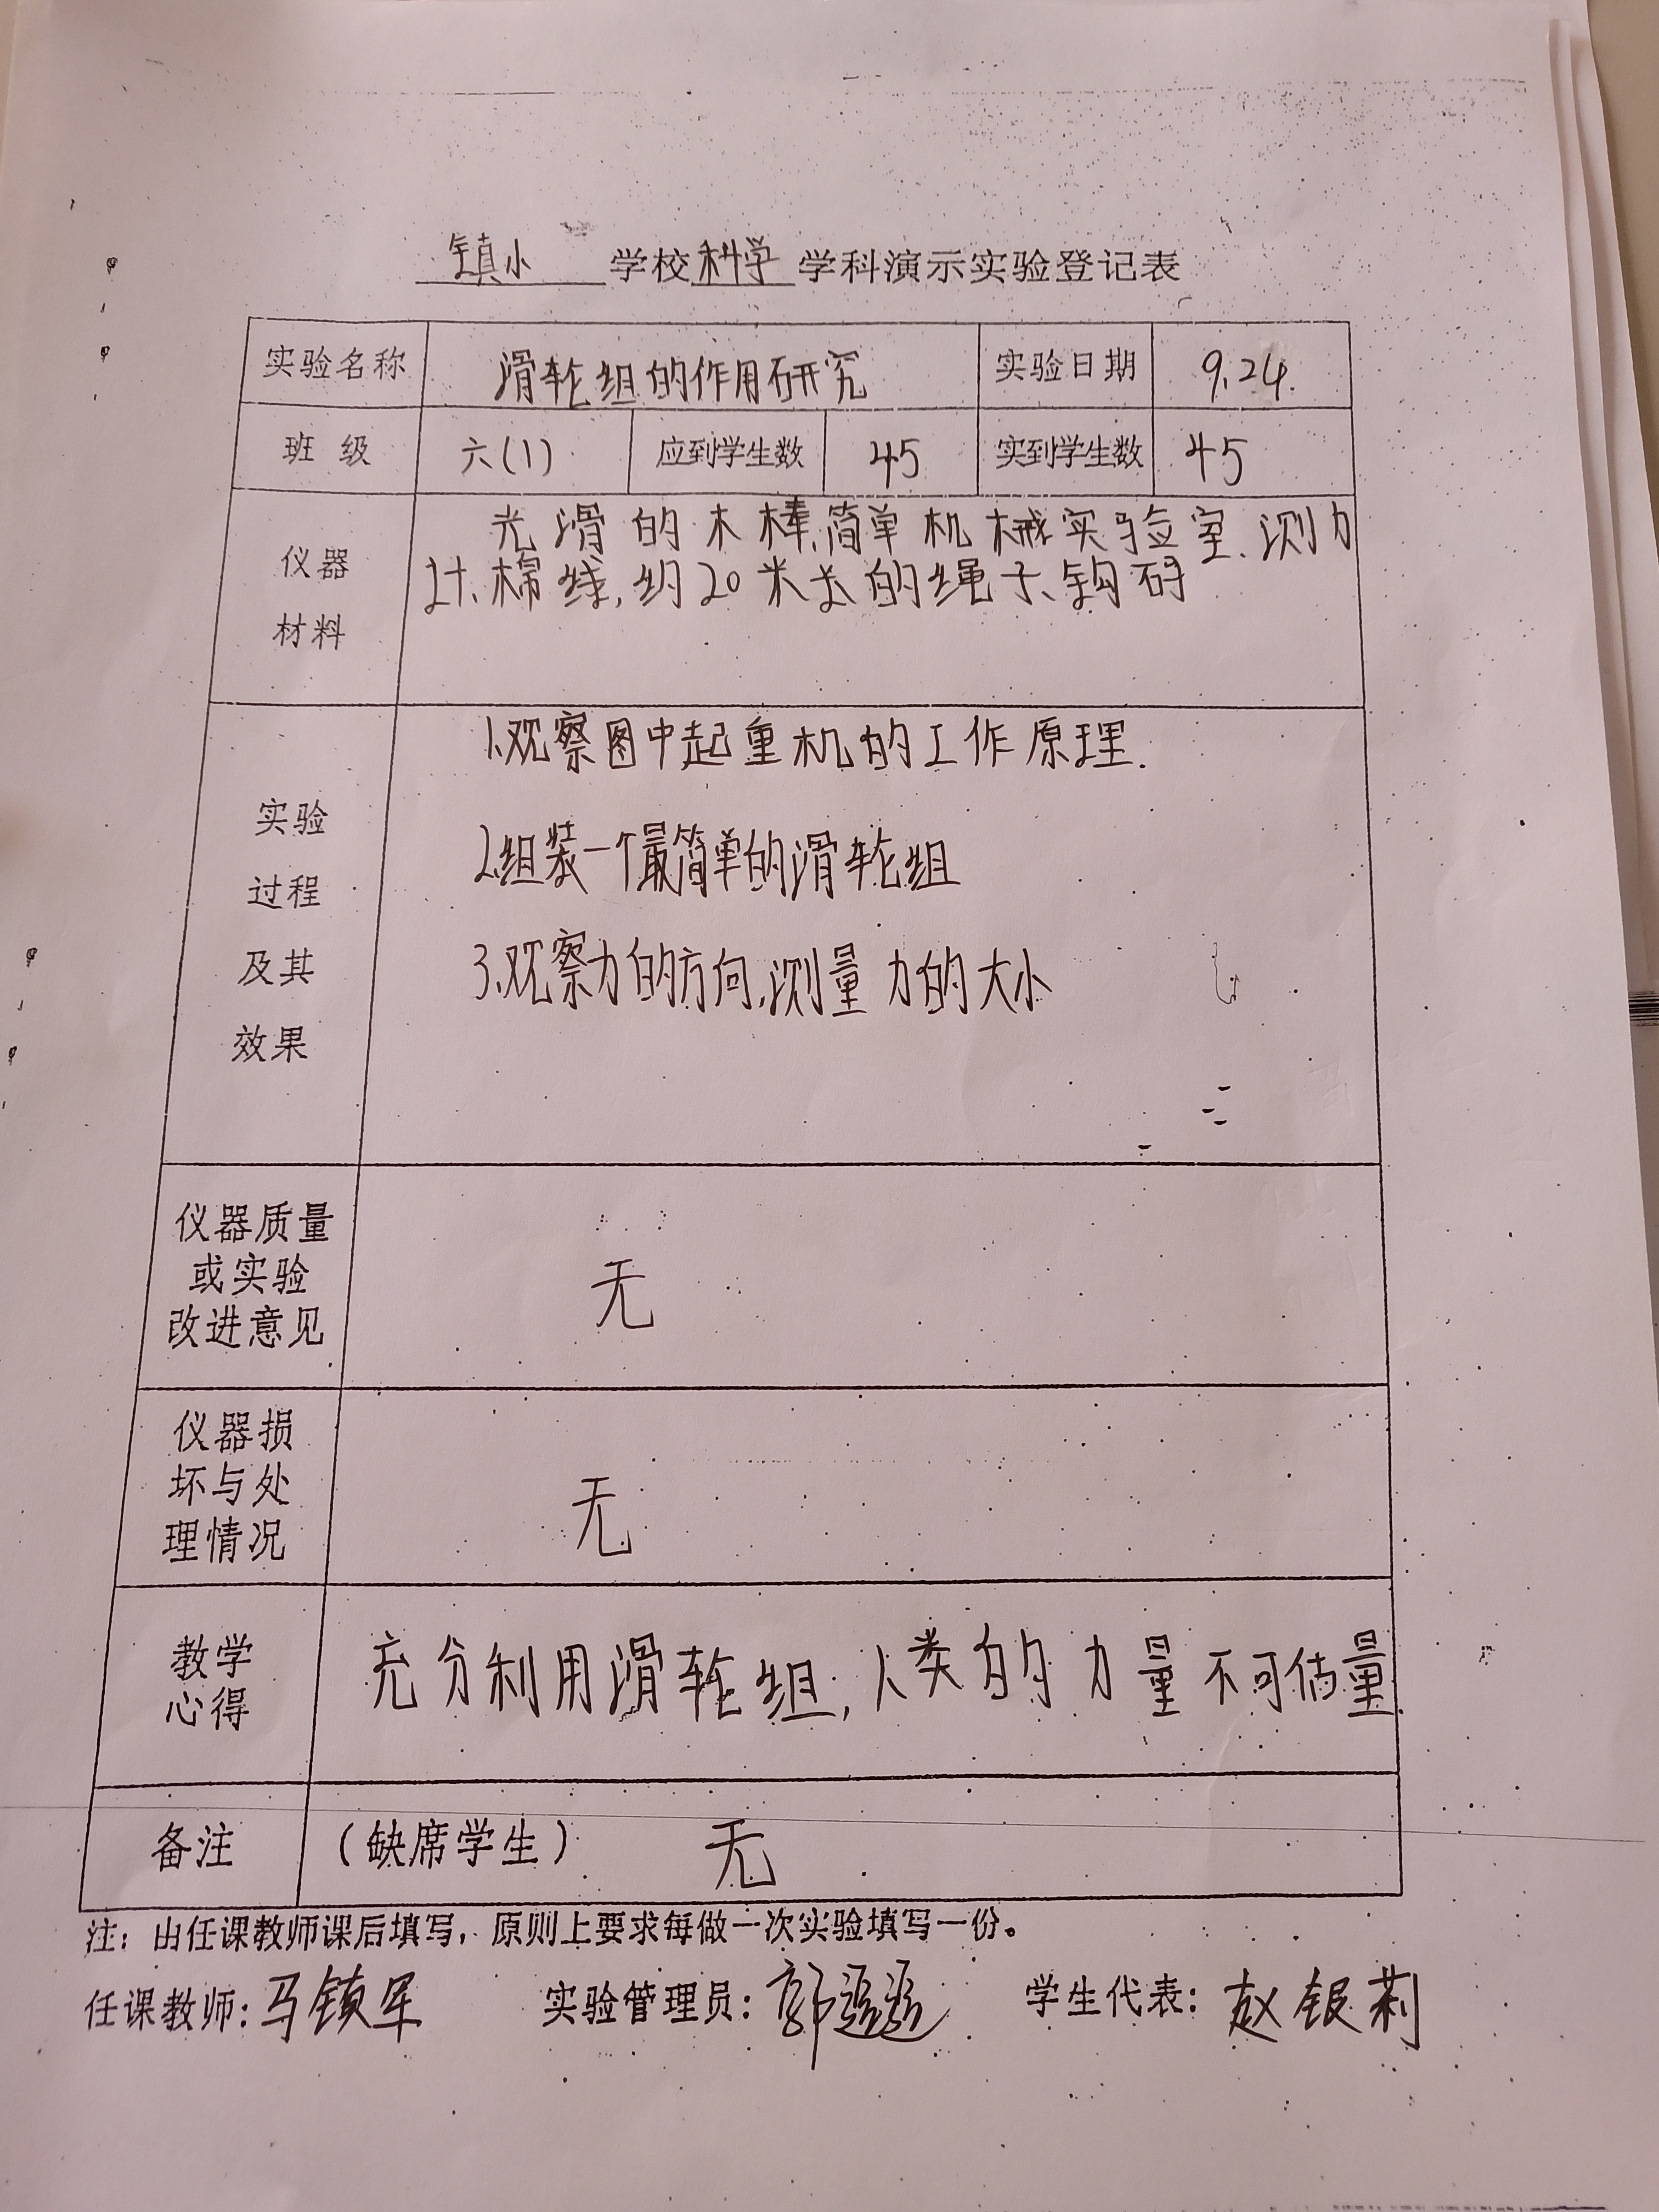 镇小 学校 科学 学科演示实验登记表
实验名称 滑轮组的作用研究 实验日期 9.24.
班 级 六(1) 应到学生数 45 实到学生数 45
仪器
材料
光滑的木棒、简单机械实验室、测力
计、棉线,约20米长的绳子、钩码
实验
过程
及其
效果
1.观察图中起重机的工作原理.
2.组装一个最简单的滑轮组
3.观察力的方向,测量力的大小
仪器质量
或实验
改进意见
无
仪器损
坏与处
理情况
无
教学
心得
充分利用滑轮组,人类的力量不可估量.
备注 (缺席学生) 无
注:由任课教师课后填写,原则上要求每做一次实验填写一份。
任课教师:马镇军 实验管理员:郭 学生代表:赵银莉